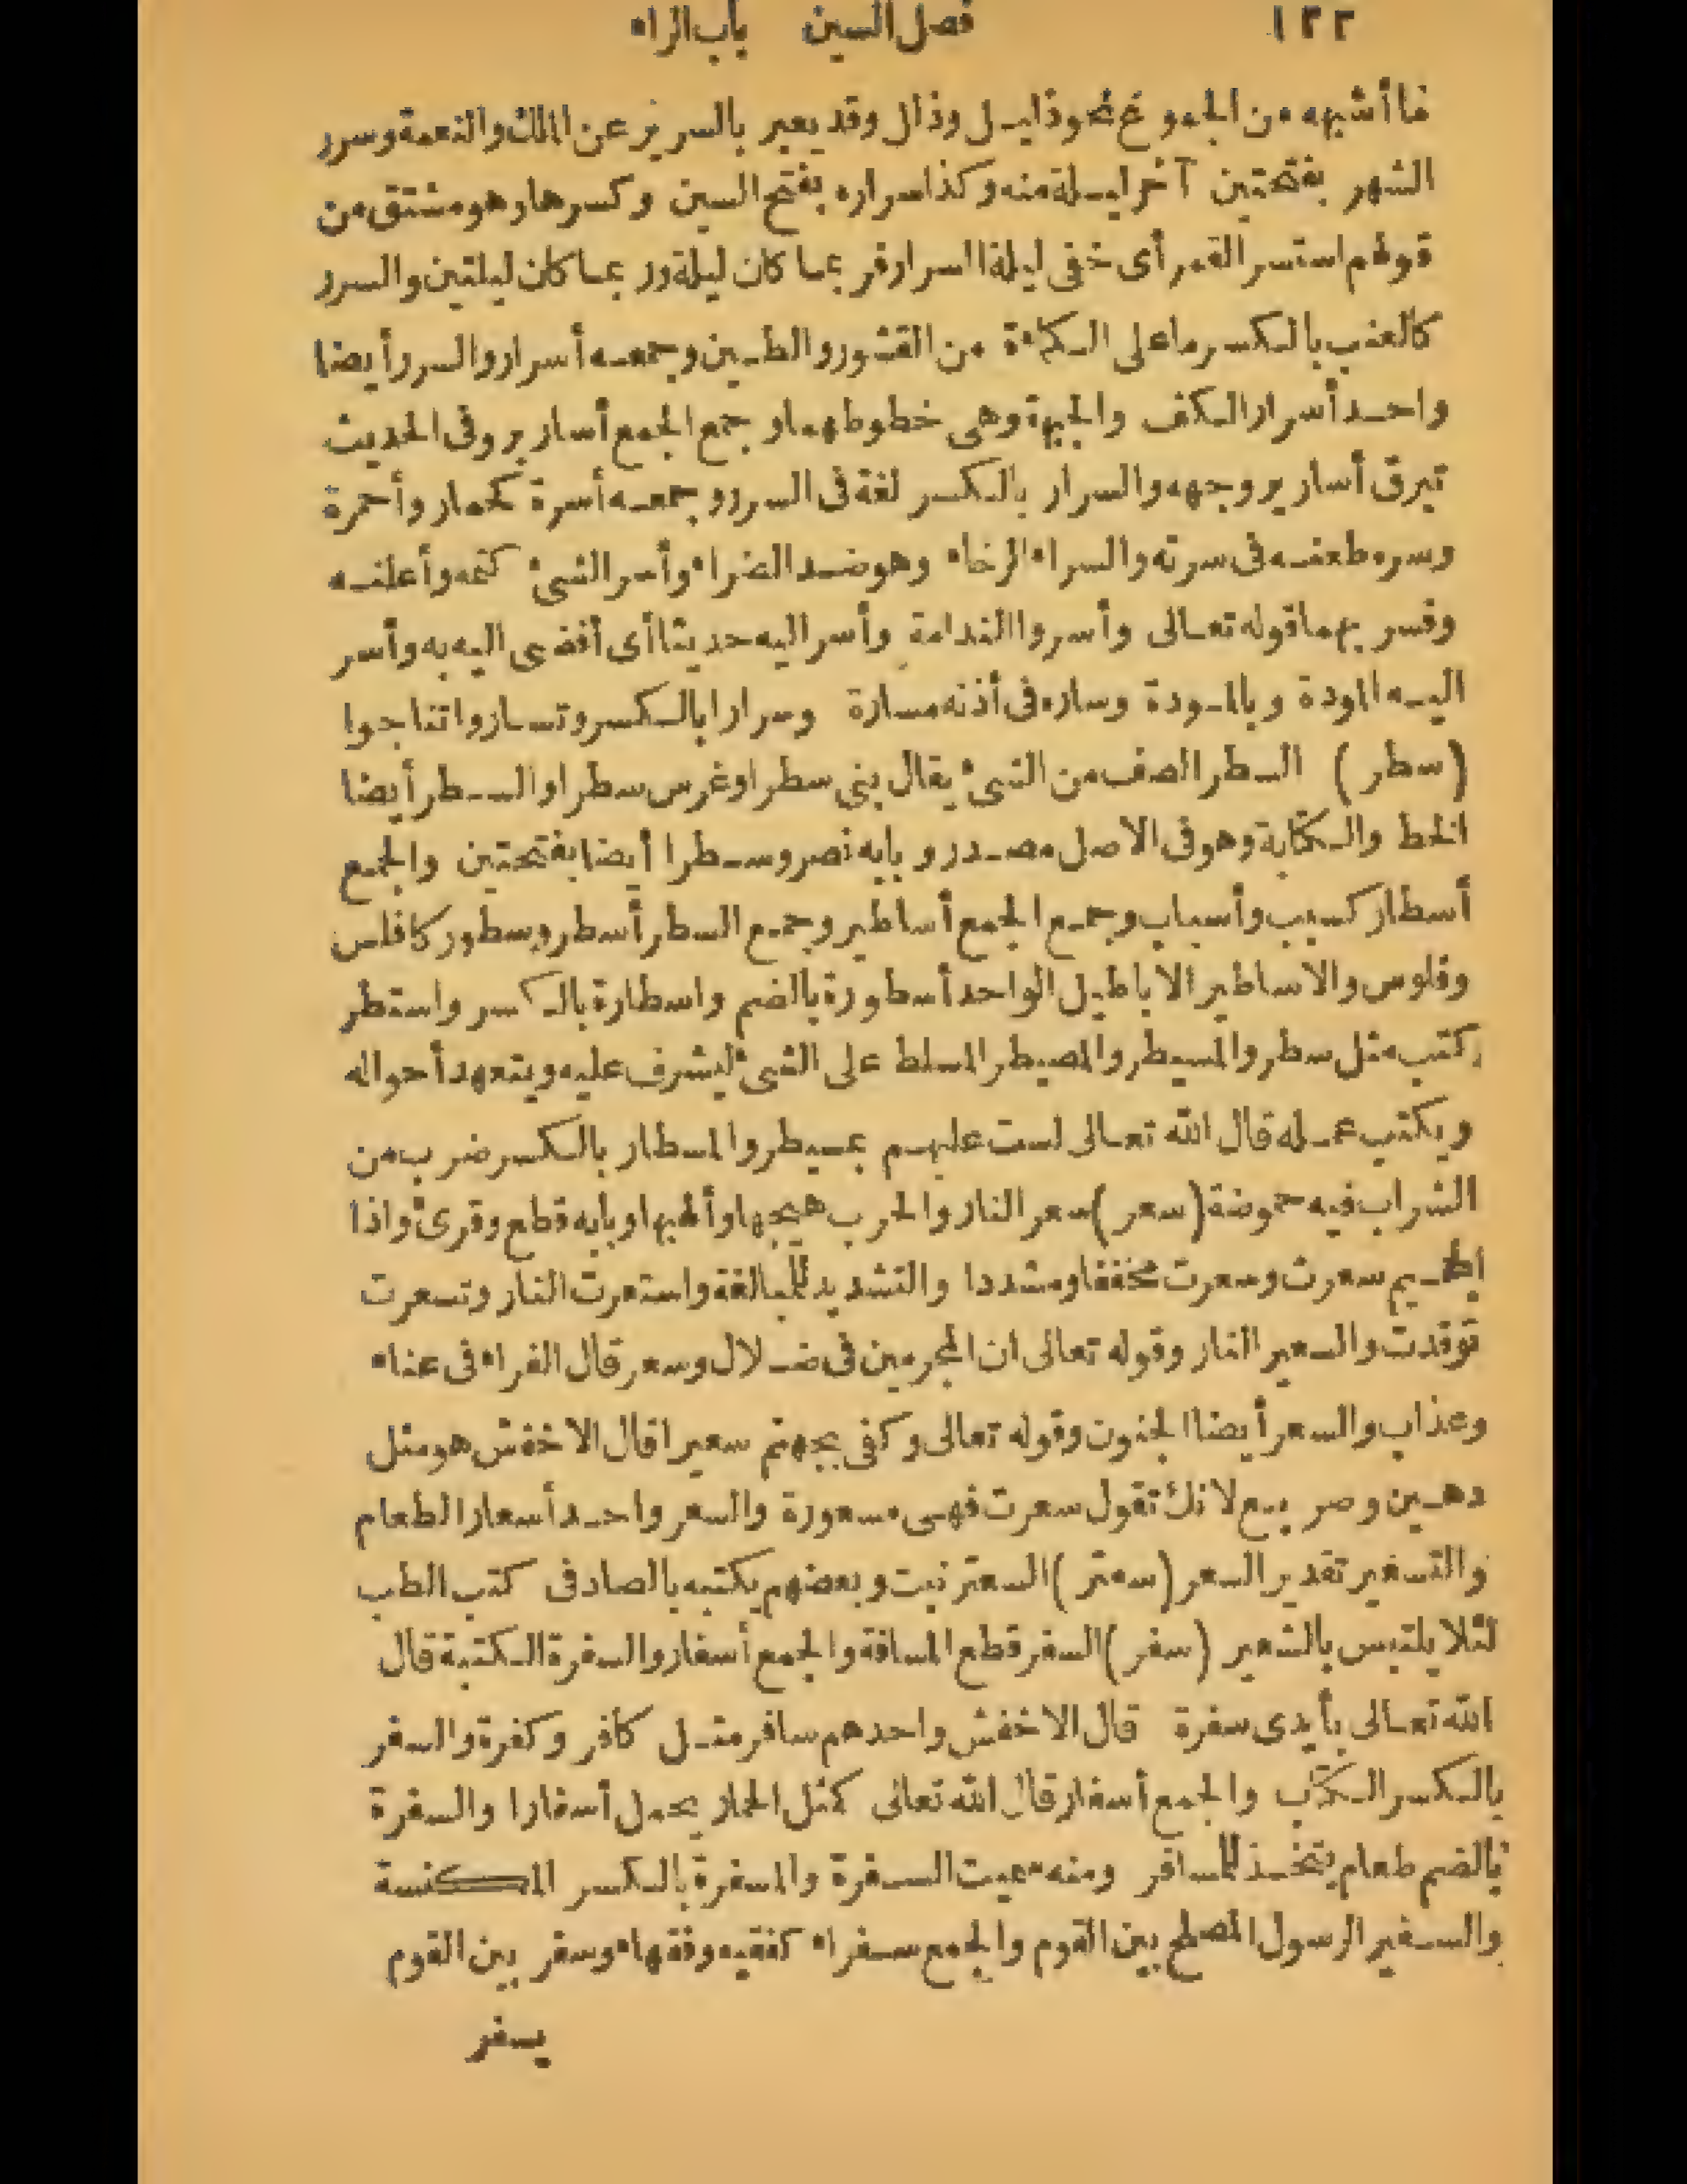 ١٢٢ فصل السين باب الراء
فما أشبهه من الجموع نحو ذليل وذلل وقد يعبر بالسرير عن الملك والنعمة وسرر
الشهر بفتحتين آخر ليلة منه وكذا سراره بفتح السين وكسرها وهو مشتق من
قولهم استسر القمر أى خفى ليلة السرار فربما كان ليلة وربما كان ليلتين والسرر
كالعنب بالكسر ما على الكمأة من القشور والطين وجمعه أسرار والسرر أيضا
واحد أسرار الكف والجبهة وهى خطوطهما وجمع الجمع أسارير وفى الحديث
تبرق أسارير وجهه والسرار بالكسر لغة فى السرر وجمعه أسرة كحمار وأحمرة
وسره طعنه فى سرته والسراء الرخاء وهو ضد الضراء وأسر الشئ كتمه وأعلنه
وفسر بهما قوله تعالى وأسروا الندامة وأسر اليه حديثا أى أفضى اليه به وأسر
اليه المودة وبالمودة وساره فى أذنه مسارة وسرارا بالكسر وتساروا تناجوا
(سطر) السطر الصف من الشئ يقال بنى سطرا وغرس سطرا والسطر أيضا
الخط والكتابة وهو فى الاصل مصدر وبابه نصر وسطرا أيضا بفتحتين والجمع
أسطار كسبب وأسباب وجمع الجمع أساطير وجمع السطر أسطر وسطور كافلس
وفلوس والاساطير الاباطيل الواحد أسطورة بالضم واسطارة بالكسر واستطر
كتب مثل سطر والمسيطر والمصيطر المسلط على الشئ ليشرف عليه ويتعهد أحواله
ويكتب عمله قال الله تعالى لست عليهم بمسيطر والمسطار بالكسر ضرب من
الشراب فيه حموضة (سعر) سعر النار والحرب هيجها وألهبها وبابه قطع وقرئ واذا
الجحيم سعرت وسعرت مخففا ومشددا والتشديد للمبالغة واستعرت النار وتسعرت
توقدت والسعير النار وقوله تعالى ان المجرمين فى ضلال وسعر قال الفراء فى عناء
وعذاب والسعر أيضا الجنون وقوله تعالى وكفى بجهنم سعيرا قال الاخفش هو مثل
دهين وصريع لانك تقول سعرت فهى مسعورة والسعر واحد أسعار الطعام
والتسعير تقدير السعر (سعتر) السعتر نبت وبعضهم يكتبه بالصاد فى كتب الطب
لئلا يلتبس بالشعير (سفر) السفر قطع المسافة والجمع أسفار والسفرة الكتبة قال
الله تعالى بأيدى سفرة قال الاخفش واحدهم سافر مثل كافر وكفرة والسفر
بالكسر الكتاب والجمع أسفار قال الله تعالى كمثل الحمار يحمل أسفارا والسفرة
بالضم طعام يتخذ للمسافر ومنه سميت السفرة والمسفرة بالكسر المكنسة
والسفير الرسول المصلح بين القوم والجمع سفراء كفقيه وفقهاء وسفر بين القوم
يسفر